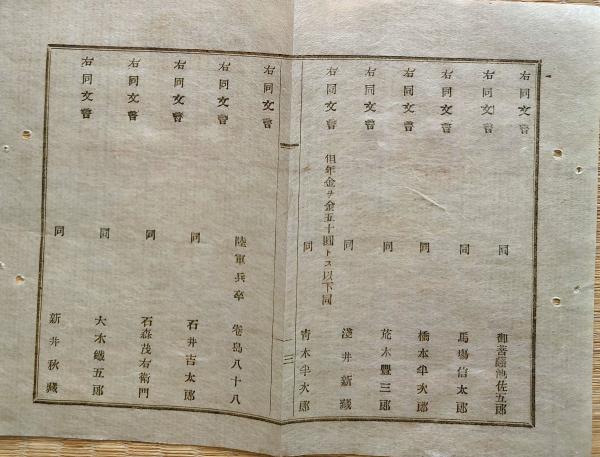 右同文言
同 御菩薩池佐五郎
右同文言
同 馬場信太郎
右同文言
同 橋本半次郎
右同文言
同 荒木豐三郎
右同文言
同 淺井新藏
右同文言
但年金ヲ金五十圓トス以下同
同 青木半次郎
三
右同文言
陸軍兵卒 卷島八十八
右同文言
同 石井吉太郎
右同文言
同 石森茂右衛門
右同文言
同 大木鐵五郎
右同文言
同 新井秋藏